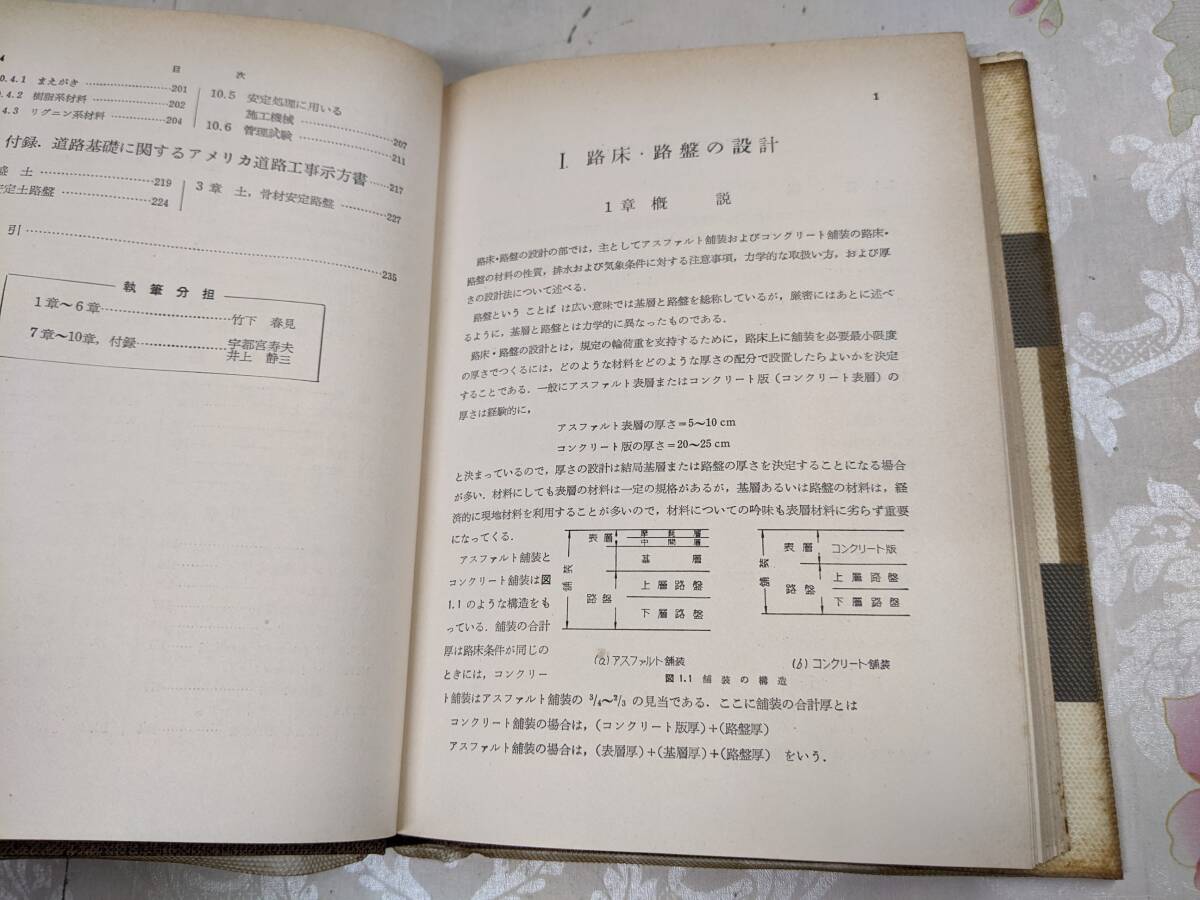 4
目 次
0.4.1 まえがき ……………201
0.4.2 樹脂系材料 ……………202
4.3 リグニン系材料 ……………204
10.5 安定処理に用いる
施工機械 ……………207
10.6 管理試験 ……………211
付録. 道路基礎に関するアメリカ道路工事示方書……217
盛 土 ……………219
安定土路盤 ……………224
3章 土, 骨材安定路盤 ……………227
引 ……………235
執筆分担
1章〜6章 竹下 春見
7章〜10章, 付録 宇都宮寿夫
井上 静三
1
I. 路床・路盤の設計
1章 概 説
路床・路盤の設計の部では, 主としてアスファルト舗装およびコンクリート舗装の路床・
路盤の材料の性質, 排水および気象条件に対する注意事項, 力学的な取扱い方, および厚
さの設計法について述べる.
路盤という ことば は広い意味では基層と路盤を総称しているが, 厳密にはあとに述べ
るように, 基層と路盤とは力学的に異なったものである.
路床・路盤の設計とは, 規定の輪荷重を支持するために, 路床上に舗装を必要最小限度
の厚さでつくるには, どのような材料をどのような厚さの配分で設置したらよいかを決定
することである. 一般にアスファルト表層またはコンクリート版 (コンクリート表層) の
厚さは経験的に,
アスファルト表層の厚さ=5〜10 cm
コンクリート版の厚さ=20〜25 cm
と決まっているので, 厚さの設計は結局基層または路盤の厚さを決定することになる場合
が多い. 材料にしても表層の材料は一定の規格があるが, 基層あるいは路盤の材料は, 経
済的に現地材料を利用することが多いので, 材料についての吟味も表層材料に劣らず重要
になってくる.
アスファルト舗装と
コンクリート舗装は図
1.1 のような構造をも
っている. 舗装の合計
厚は路床条件が同じの
ときには, コンクリー
ト舗装はアスファルト舗装の 3/4〜2/3 の見当である. ここに舗装の合計厚とは
コンクリート舗装の場合は, (コンクリート版厚)+(路盤厚)
アスファルト舗装の場合は, (表層厚)+(基層厚)+(路盤厚) をいう.
舗装
表層
摩耗層
中間層
基層
路盤
上層路盤
下層路盤
(a) アスファルト舗装
舗装
表層
コンクリート版
路盤
上層路盤
下層路盤
(b) コンクリート舗装
図 1.1 舗装の構造